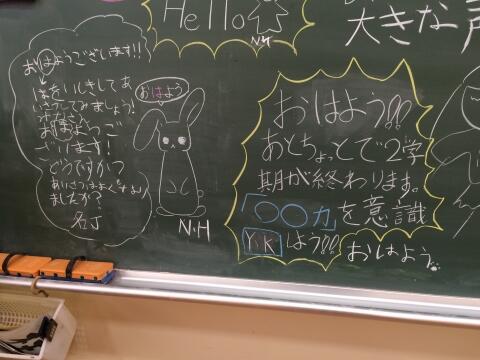 Hello
N・H
大きな声
おはようございます!!
はをいしきしてあ
いさつしてみましょう!
みなさん
おはようご
ざいます!
どうですか?
あいさつはよくなり
ましたか?
おはよう
N・H
おはよう!!
あとちょっとで2学
期が終わります。
「〇〇力」を意識
しよう!!
Y・K
おはよう